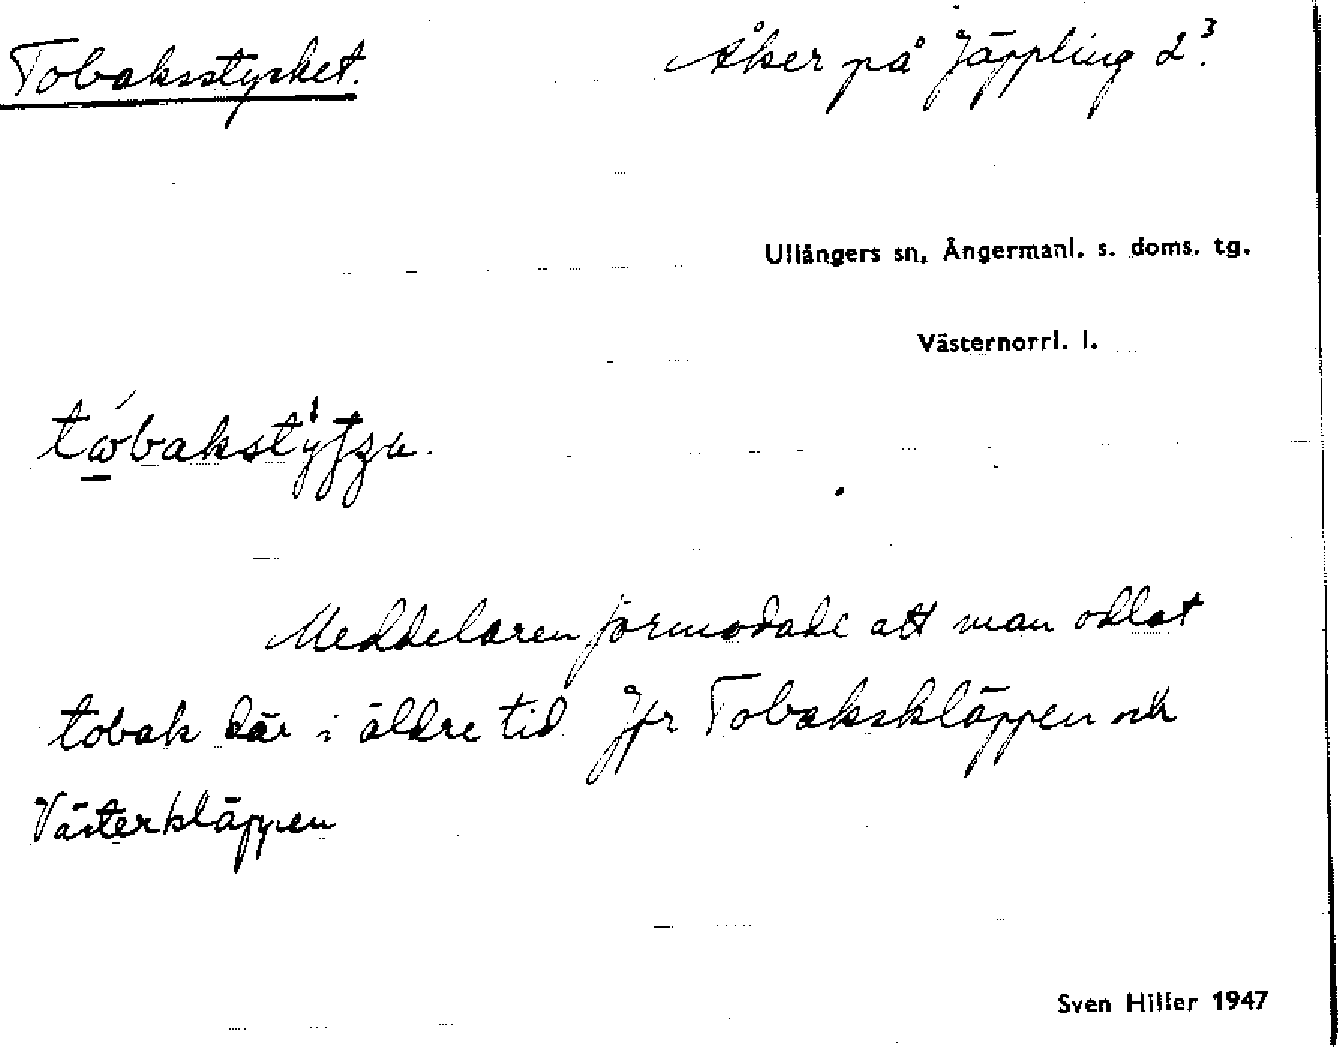 Tobaksstycket. Åker på Jäppling 2³.
Ullångers sn, Ångermanl. s. doms. tg.
Västernorrl. l.
Meddelaren förmodade att man odlat
tobak där i äldre tid. Jfr Tobakskläppen och
Västerkläppen
Sven Hiller 1947